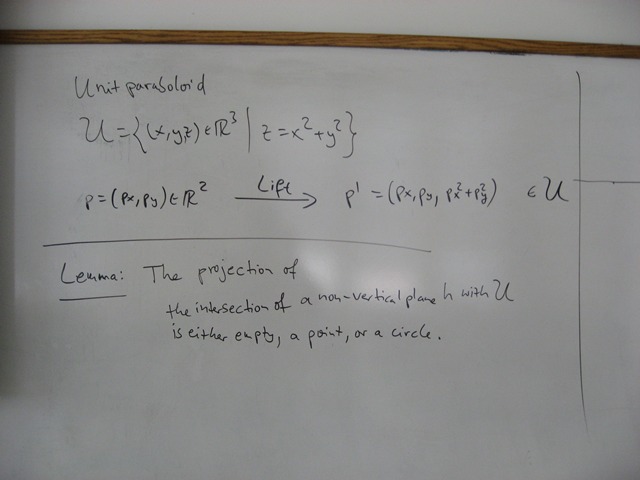 Unit paraboloid
U = {(x,y,z) ∈ ℝ³ | z = x² + y²}
p = (px, py) ∈ ℝ² Lift → p' = (px, py, px² + py²) ∈ U
Lemma: The projection of
the intersection of a non-vertical plane h with U
is either empty, a point, or a circle.